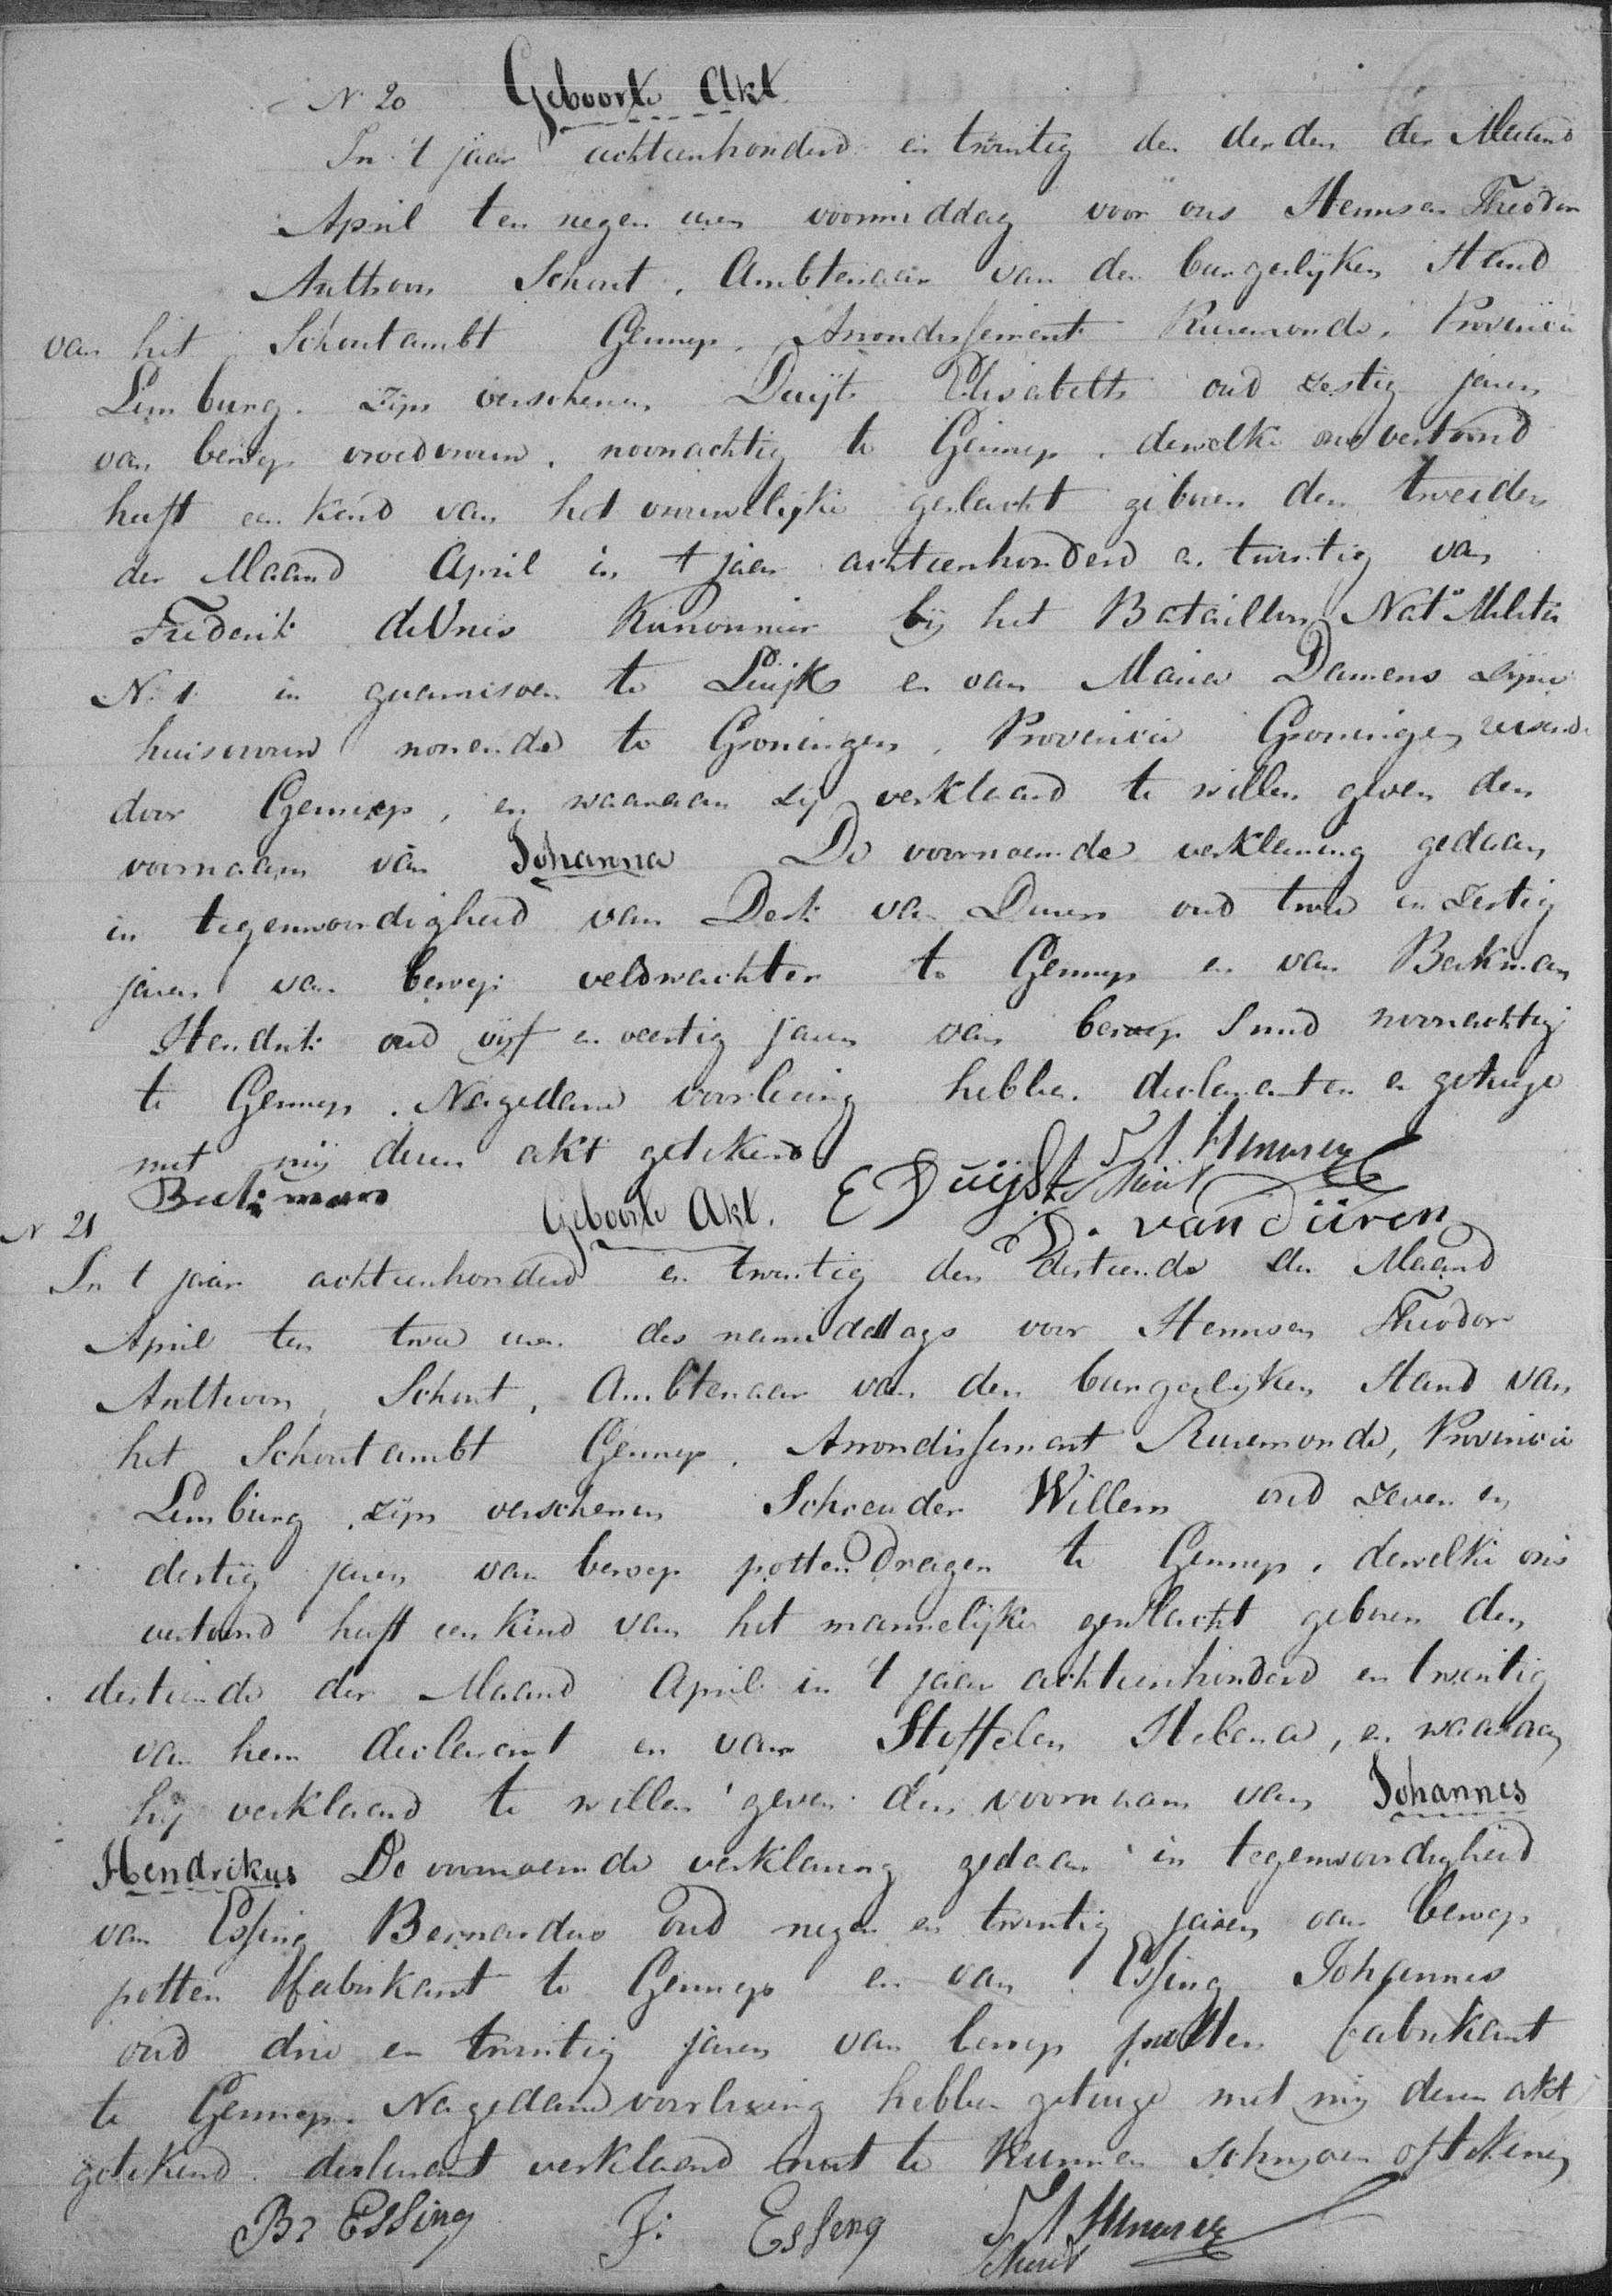 N. 20 Geboorte Akt.
In 't jaar achtienhonderd en twintig den derden der Maand
April ten negen uren voormiddag voor ons Hennsen Theodor
Anthoon Schout, Ambtenaar van den burgerlijken Stand
van het Schoutambt Gennep, Arrondissement Ruremonde, Provincie
Limburg, zijn verschenen Duijts Elisabeth oud zestig jaren
van beroep vroedvrouw, woonachtig te Gennep, dewelke ons vertoond
heeft een kind van het vrouwelijke geslacht geboren den tweeden
der Maand April in 't jaar achtienhonderd en twintig van
Frederik deVries Kanonnier bij het Bataillon Nat. Militie
N. 1 in guarnisoen te Luijk en van Maria Damens zijne
huisvrouw wonende te Groningen, Provincie Groningen, reisende
door Gennep, en waaraan zij verklaard te willen geven den
voornaam van Johanna De voornoemde verklaring gedaan
in tegenwoordigheid van Derk van Duren oud twee en zestig
jaren van beroep veldwachter te Gennep en van Bekman
Hendrik oud vijf en veertig jaren van beroep Smid woonachtig
te Gennep. Nagedane voorlezing hebben declaranten en getuige
met mij dezen akt getekend
Bekman E Duijts T A Hennsen Schout
D. van Düren
N 21 Geboorte Akt.
In 't jaar achtienhonderd en twintig den dertiende der Maand
April ten twee uren des namiddags voor Hennsen Theodor
Anthoon, Schout, Ambtenaar van den burgerlijken Stand van
het Schoutambt Gennep, Arrondissement Ruremonde, Provincie
Limburg, zijn verschenen Schreuder Willem oud zeven en
dertig jaren van beroep potten Drager te Gennep, dewelke ons
vertoond heeft een kind van het mannelijke geslacht geboren den
dertiende der Maand April in 't jaar achtienhonderd en twintig
van hem declarant en van Stoffelen Helena, en waaraan
hij verklaard te willen geven den voornaam van Johannes
Hendrikus De voornoemde verklaring gedaan in tegenwoordigheid
van Essing Bernardus oud negen en twintig jaren van beroep
potten fabrikant te Gennep en van Essing Johannes
oud drie en twintig jaren van beroep potten fabrikant
te Gennep. Nagedane voorlezing hebben getuige met mij dezen akt
getekend. declarant verklaard niet te kunnen schrijven of tekenen
Br Essing J: Esseng T A Hennsen
Schout